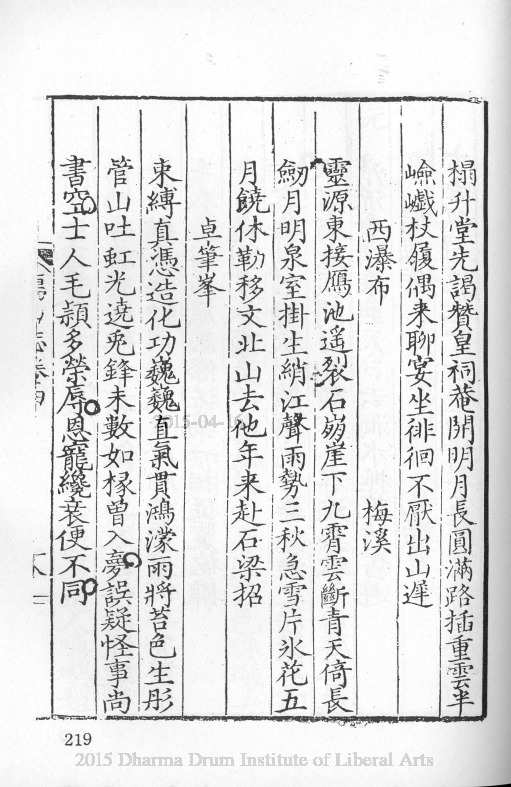 榻升堂先謁贊皇祠菴開明月長圓滿路插重雲半
嶮巇杖履偶来聊宴坐徘徊不厭出山遲
西瀑布 梅溪
靈源東接鴈池遥裂石崩崖下九霄雲斷青天倚長
劒月明泉室掛生綃江聲雨勢三秋急雪片氷花五
月饒休勒移文北山去他年来赴石梁招
卓筆峯
束縛真憑造化功巍巍直氣貫鴻濛雨將苔色生彤
管山吐虹光遶兎鋒未數如椽曾入夢誤疑怪事尚
書空士人毛頴多榮辱恩寵纔衰便不同
219
2015-04-16
2015 Dharma Drum Institute of Liberal Arts